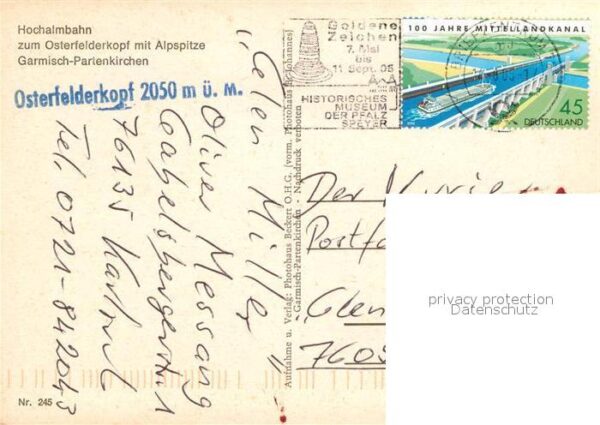 Hochalmbahn
zum Osterfelderkopf mit Alpspitze
Garmisch-Partenkirchen
Osterfelderkopf 2050 m ü. M.
"Glen Miller"
Oliver Messang
Gabelsbergerstr 1
76135 Karlsruhe
Tel. 0721-842043
Nr. 245
Aufnahme u. Verlag: Photohaus Beckert O.H.G. (vorm. Photohaus H. Johannes)
Garmisch-Partenkirchen - Nachdruck verboten
Goldene
Zeichen
7. Mai
bis
11. Sept. 05
HISTORISCHES
MUSEUM
DER PFALZ
SPEYER
BRIEFZENTRUM
100 JAHRE MITTELLANDKANAL
45
DEUTSCHLAND
Der Kurier
Postfa
Glen
7605
privacy protection
Datenschutz